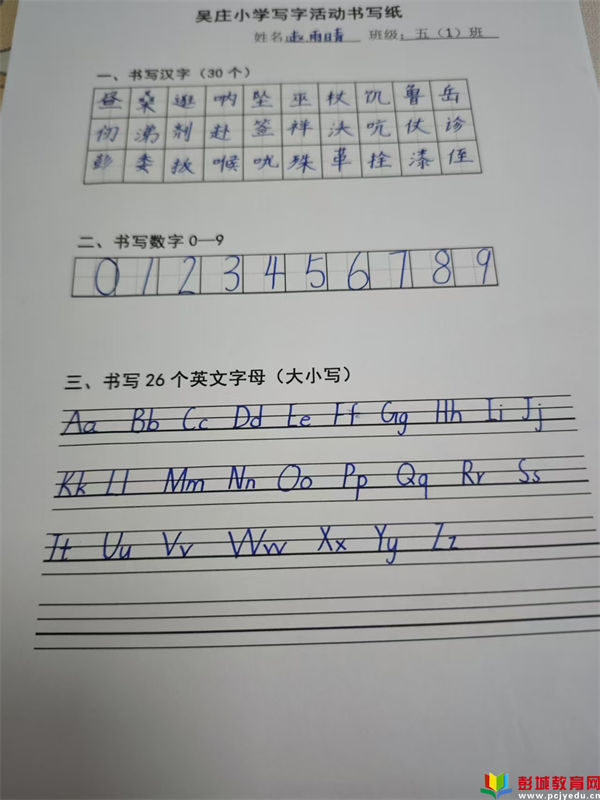 吴庄小学写字活动书写纸
姓名 赵雨晴 班级：五（1）班
一、书写汉字（30个）
昼 桑 逛 呐 坠 巫 杖 饥 鲁 岳
仞 涕 剂 赴 签 祥 沃 吭 仗 诊
彭 委 拔 喉 咣 殊 革 拴 漆 侄
二、书写数字0—9
0 1 2 3 4 5 6 7 8 9
三、书写26个英文字母（大小写）
Aa Bb Cc Dd Ee Ff Gg Hh Ii Jj
Kk Ll Mm Nn Oo Pp Qq Rr Ss
Tt Uu Vv Ww Xx Yy Zz
彭城教育网
www.pcjyedu.cn